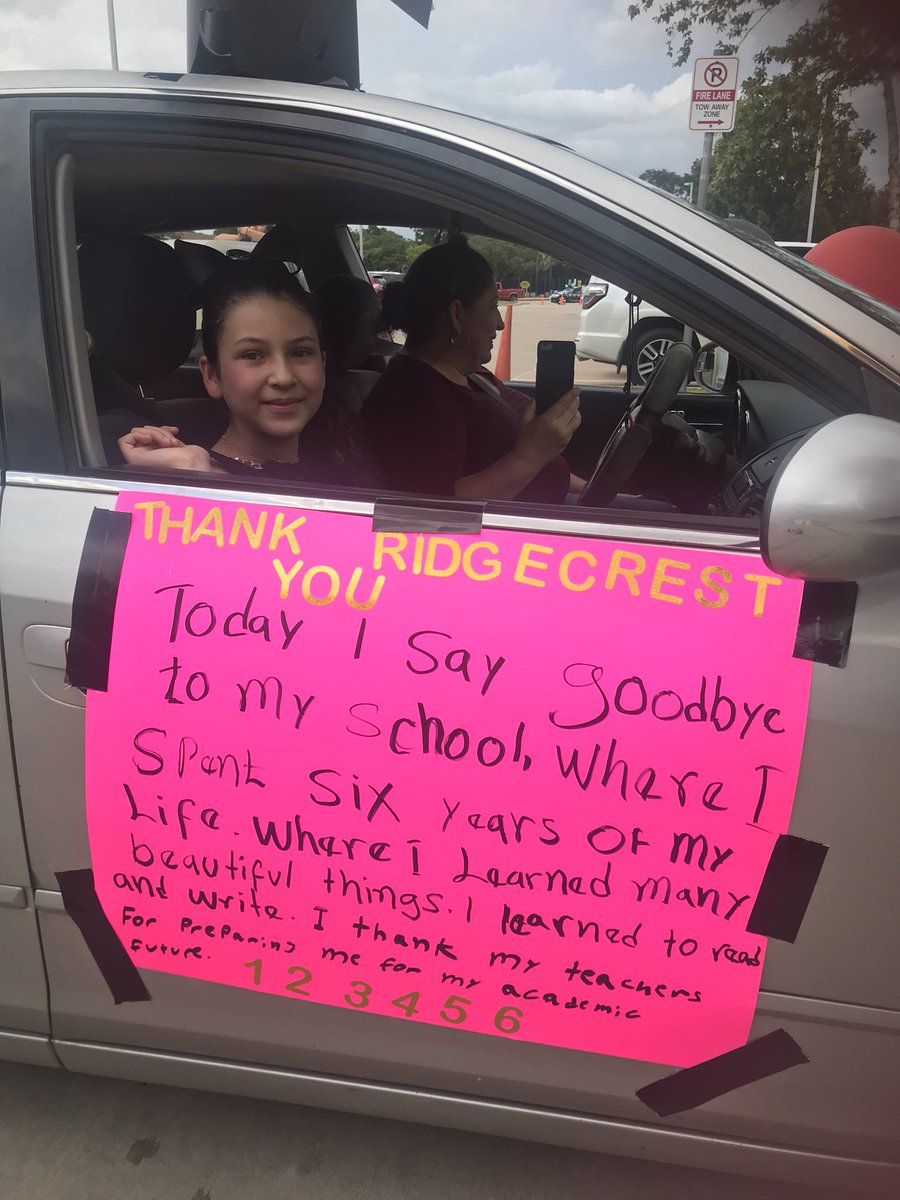 P
FIRE LANE
TOW AWAY
ZONE
THANK RIDGECREST
YOU
Today I Say goodbye
to my school, Where I
Spent Six years of my
Life. Where I Learned many
beautiful things. I learned to read
and write. I thank my teachers
For Preparing me for my academic
future.
1 2 3 4 5 6